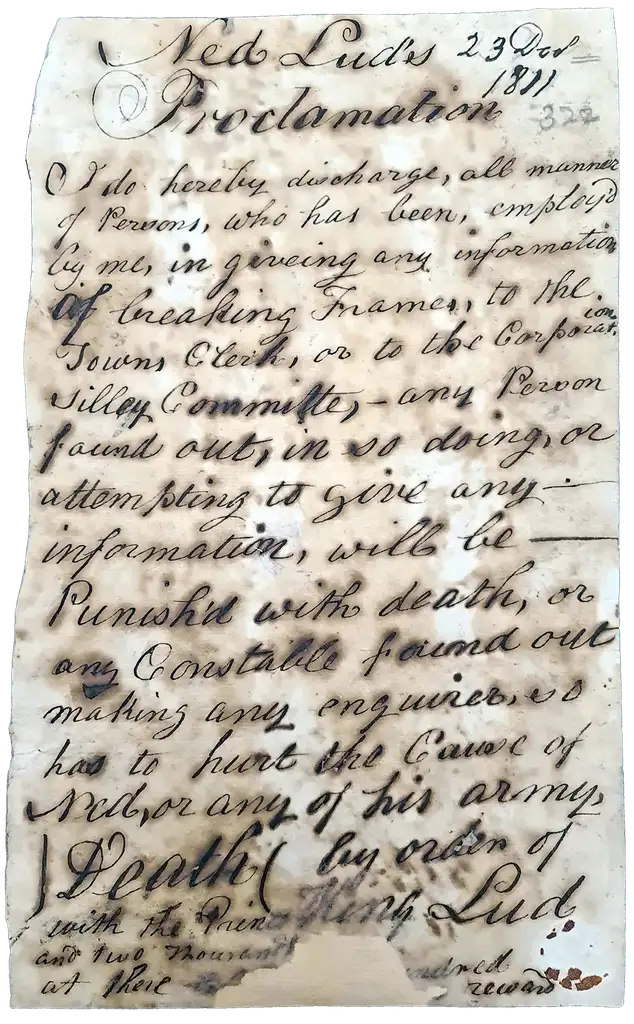 Ned Lud's 23 Decr
1811
Proclamation
322
I do hereby discharge, all manner
of Persons, who has been, employ'd
by me, in giveing any information
of breaking Frames, to the
Towns Clerk, or to the Corporation
Silley Committe, – any Person
found out, in so doing, or
attempting to give any —
information, will be —
Punish'd with death, or
any Constable found out
making any enquiries, so
has to hurt the Cause of
Ned, or any of his army,
)Death( by order of
King Lud
with the Prin
and two Thousand
at there
ndred
reward